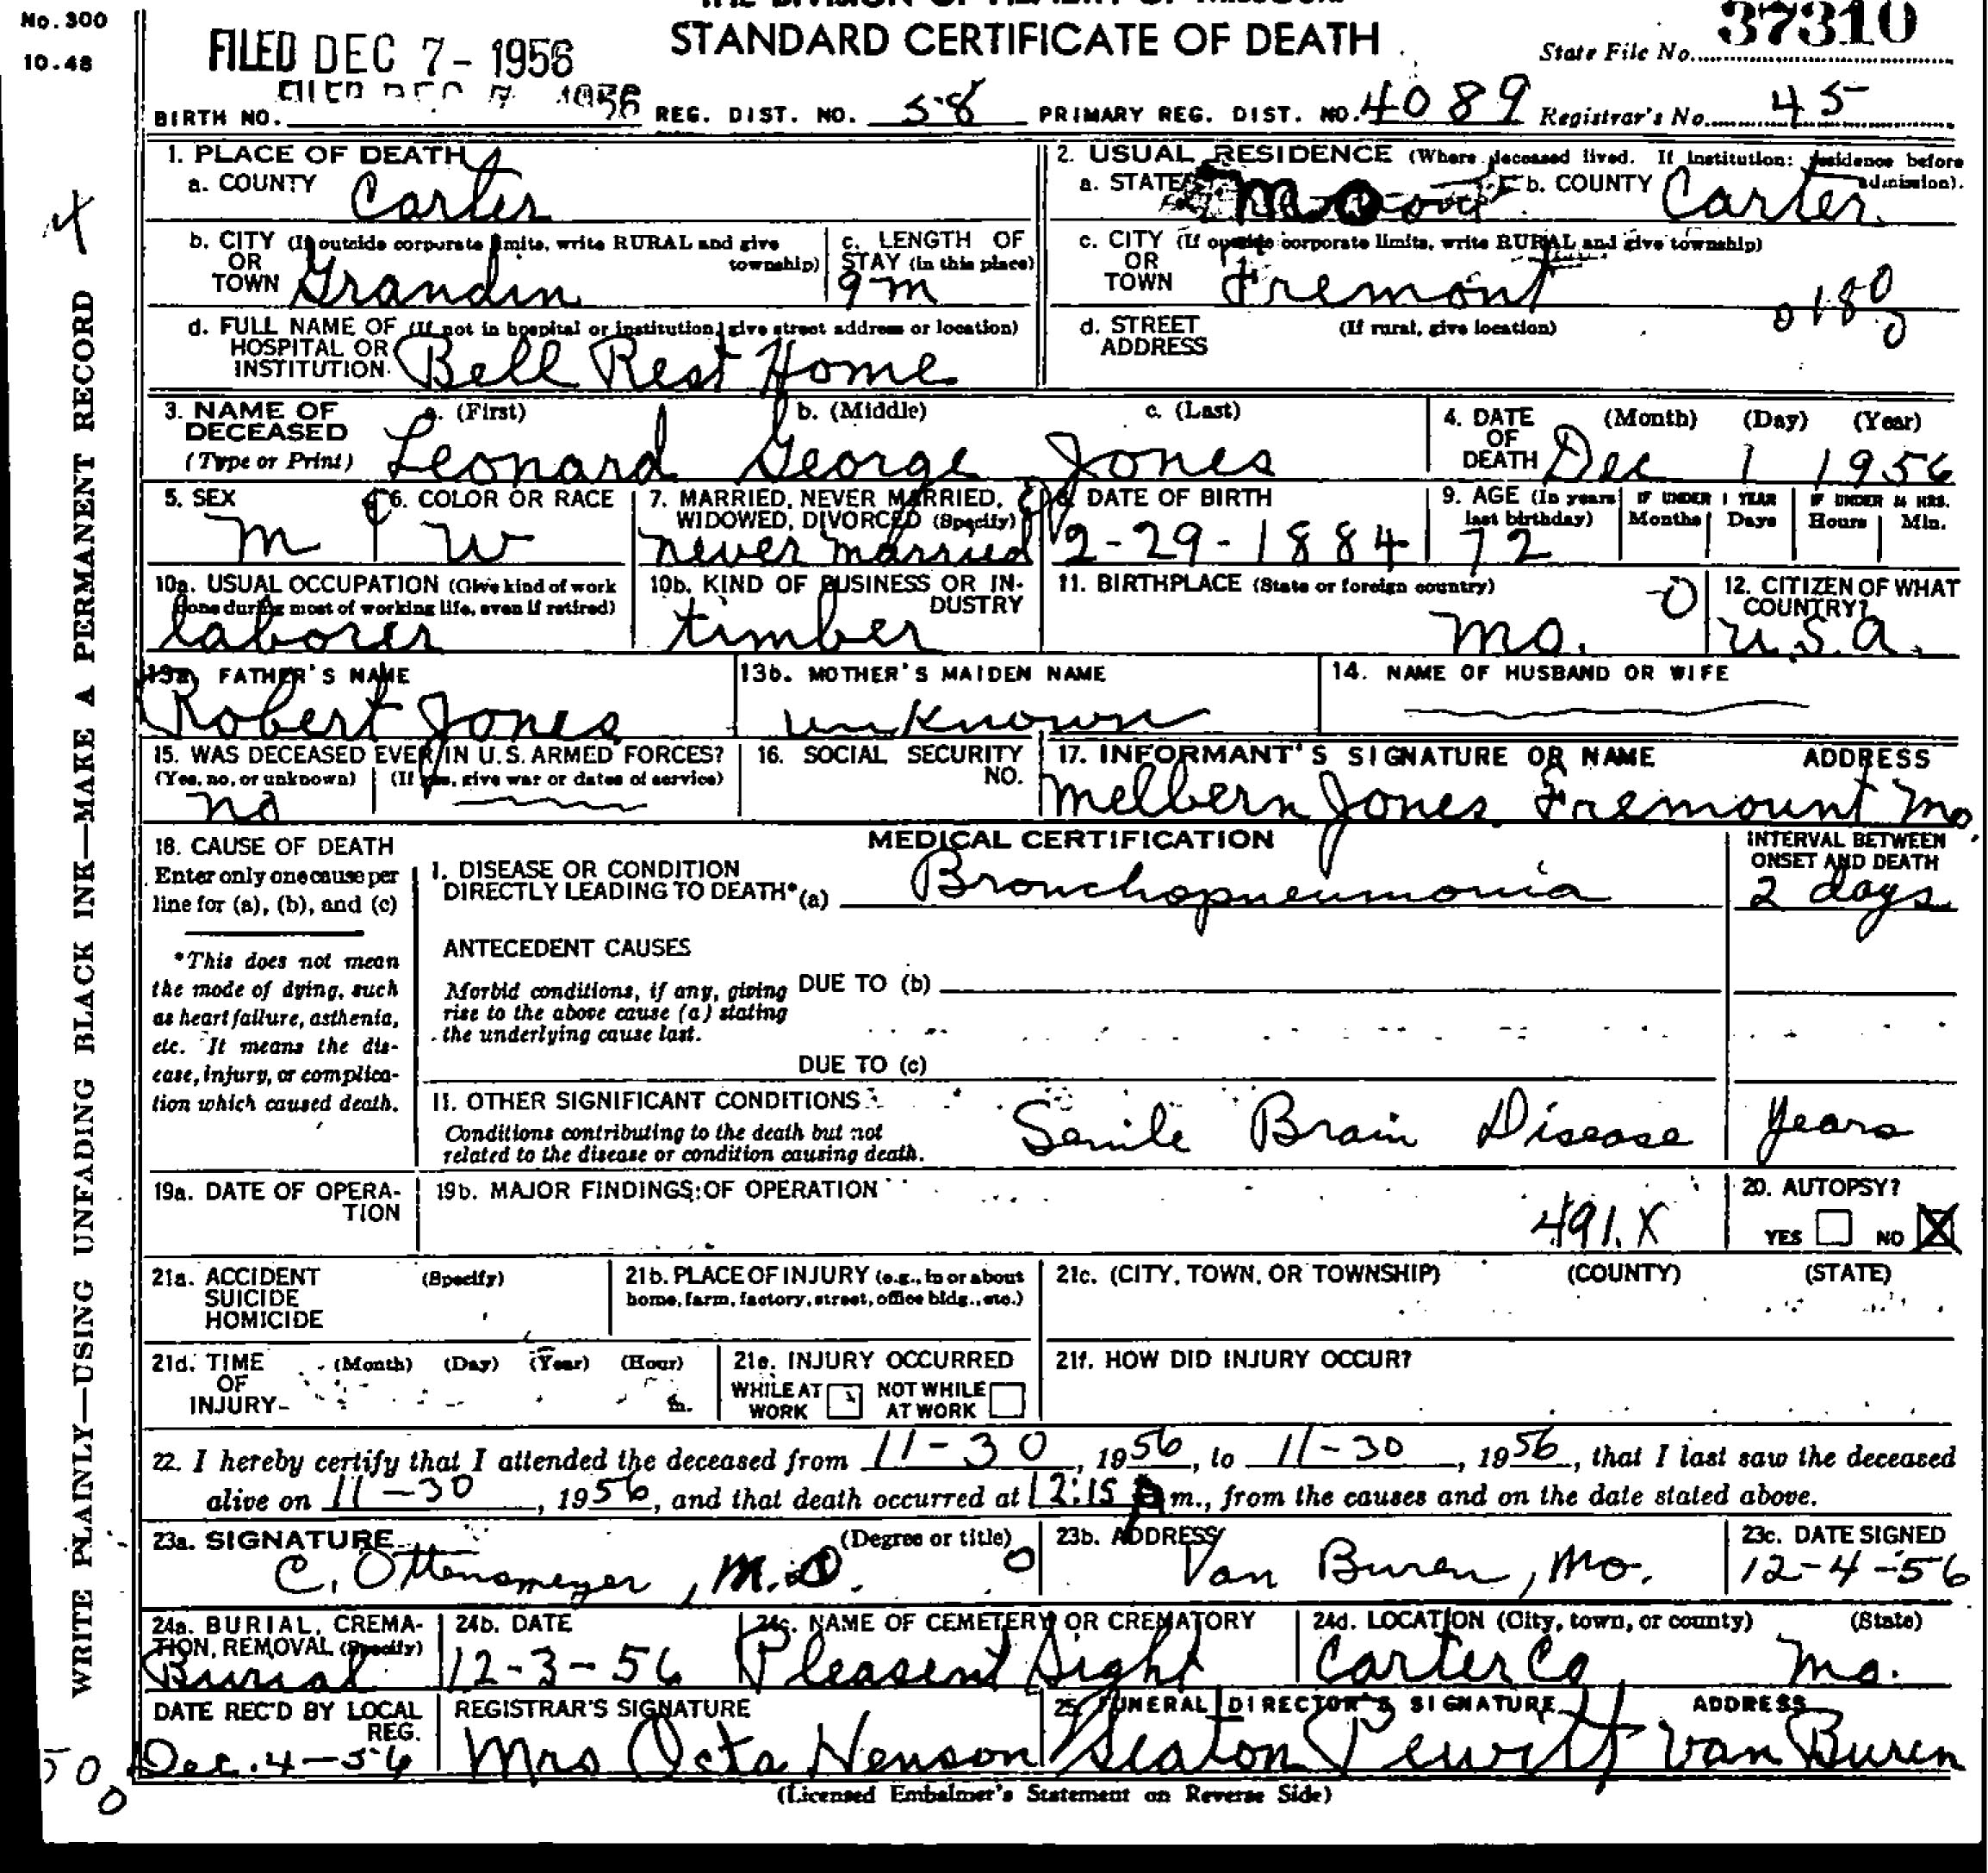 No. 300
10.48
FILED DEC 7- 1956
STANDARD CERTIFICATE OF DEATH
State File No. 37310
BIRTH NO. REG. DIST. NO. 58 PRIMARY REG. DIST. NO. 4089 Registrar's No. 45
WRITE PLAINLY—USING UNFADING BLACK INK—MAKE A PERMANENT RECORD
1. PLACE OF DEATH
a. COUNTY Carter
2. USUAL RESIDENCE (Where deceased lived. If institution: residence before admission).
a. STATE Mo b. COUNTY Carter
b. CITY (If outside corporate limits, write RURAL and give township)
OR
TOWN Grandin
c. LENGTH OF
STAY (in this place)
9 m
c. CITY (If outside corporate limits, write RURAL and give township)
OR
TOWN Fremont
0180
0
d. FULL NAME OF (If not in hospital or institution, give street address or location)
HOSPITAL OR
INSTITUTION Bell Rest Home
d. STREET (If rural, give location)
ADDRESS
3. NAME OF DECEASED
(Type or Print)
a. (First) b. (Middle) c. (Last)
Leonard George Jones
4. DATE OF DEATH (Month) (Day) (Year)
Dec 1 1956
5. SEX
M
6. COLOR OR RACE
W
7. MARRIED, NEVER MARRIED, WIDOWED, DIVORCED (Specify)
never married
8. DATE OF BIRTH
2-29-1884
9. AGE (In years last birthday)
72
IF UNDER 1 YEAR
Months Days
IF UNDER 24 HRS.
Hours Min.
10a. USUAL OCCUPATION (Give kind of work done during most of working life, even if retired)
laborer
10b. KIND OF BUSINESS OR INDUSTRY
timber
11. BIRTHPLACE (State or foreign country)
Mo.
0
12. CITIZEN OF WHAT COUNTRY?
U.S.A.
13a. FATHER'S NAME
Robert Jones
13b. MOTHER'S MAIDEN NAME
unknown
14. NAME OF HUSBAND OR WIFE
15. WAS DECEASED EVER IN U.S. ARMED FORCES?
(Yes, no, or unknown) (If yes, give war or dates of service)
no
16. SOCIAL SECURITY NO.
17. INFORMANT'S SIGNATURE OR NAME ADDRESS
Melbern Jones Fremount Mo.
18. CAUSE OF DEATH
Enter only one cause per
line for (a), (b), and (c)
*This does not mean
the mode of dying, such
as heart failure, asthenia,
etc. It means the dis-
ease, injury, or complica-
tion which caused death.
MEDICAL CERTIFICATION
INTERVAL BETWEEN
ONSET AND DEATH
I. DISEASE OR CONDITION
DIRECTLY LEADING TO DEATH* (a) Bronchopneumonia 2 days
ANTECEDENT CAUSES
Morbid conditions, if any, giving
rise to the above cause (a) stating
the underlying cause last.
DUE TO (b)
DUE TO (c)
II. OTHER SIGNIFICANT CONDITIONS
Conditions contributing to the death but not
related to the disease or condition causing death.
Senile Brain Disease years
19a. DATE OF OPERA-
TION
19b. MAJOR FINDINGS OF OPERATION
491.X
20. AUTOPSY?
YES NO X
21a. ACCIDENT (Specify)
SUICIDE
HOMICIDE
21b. PLACE OF INJURY (e.g., in or about
home, farm, factory, street, office bldg., etc.)
21c. (CITY, TOWN, OR TOWNSHIP) (COUNTY) (STATE)
21d. TIME (Month) (Day) (Year) (Hour)
OF
INJURY m.
21e. INJURY OCCURRED
WHILE AT WORK NOT WHILE AT WORK
21f. HOW DID INJURY OCCUR?
22. I hereby certify that I attended the deceased from 11-30, 1956, to 11-30, 1956, that I last saw the deceased
alive on 11-30, 1956, and that death occurred at 12:15 m., from the causes and on the date stated above.
23a. SIGNATURE (Degree or title)
C. Ottensmeyer, M.D.
23b. ADDRESS
Van Buren, Mo.
23c. DATE SIGNED
12-4-56
24a. BURIAL, CREMA-
TION, REMOVAL (Specify)
Burial
24b. DATE
12-3-56
24c. NAME OF CEMETERY OR CREMATORY
Pleasent Sight
24d. LOCATION (City, town, or county) (State)
Carter Co Mo.
DATE REC'D BY LOCAL
REG.
Dec. 4-56
REGISTRAR'S SIGNATURE
Mrs Octa Henson
25. FUNERAL DIRECTOR'S SIGNATURE ADDRESS
Seaton Pewitt Van Buren
(Licensed Embalmer's Statement on Reverse Side)